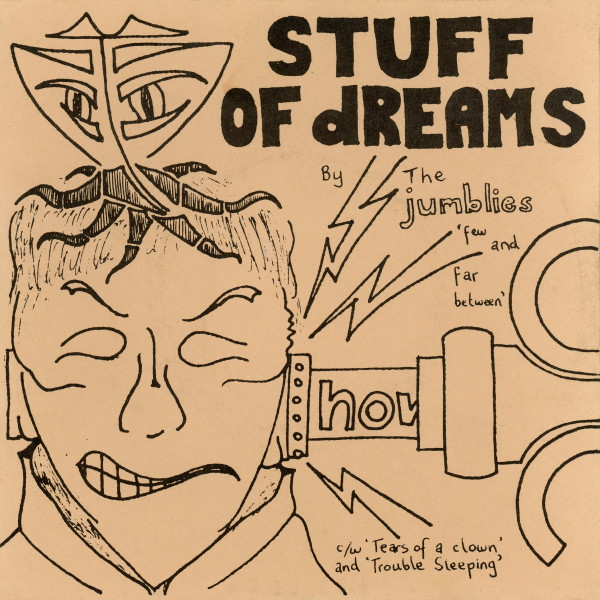 STUFF
OF dREAMS
By The
jumblies
'few
and
far
between'
how
c/w 'Tears of a clown'
and 'Trouble Sleeping'